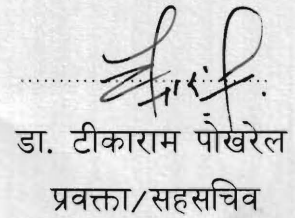 डा. टीकाराम पोखरेल
प्रवक्ता/सहसचिव